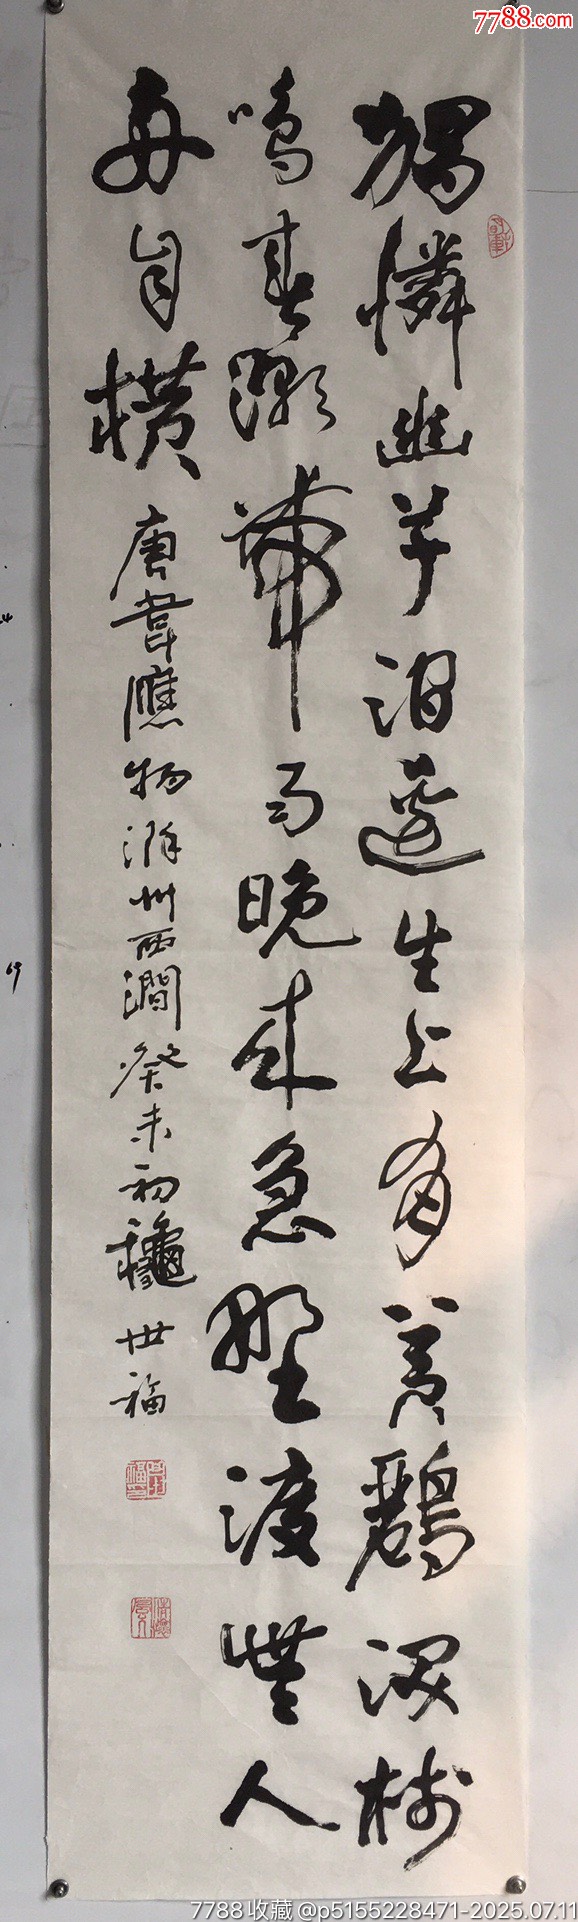 7788.com
獨憐幽草澗邊生上有黃鸝深樹
鳴春潮帶雨晚來急野渡無人
舟自橫 唐韋應物滁州西澗癸未初龝世福
7788收藏 @p5155228471-2025.07.11